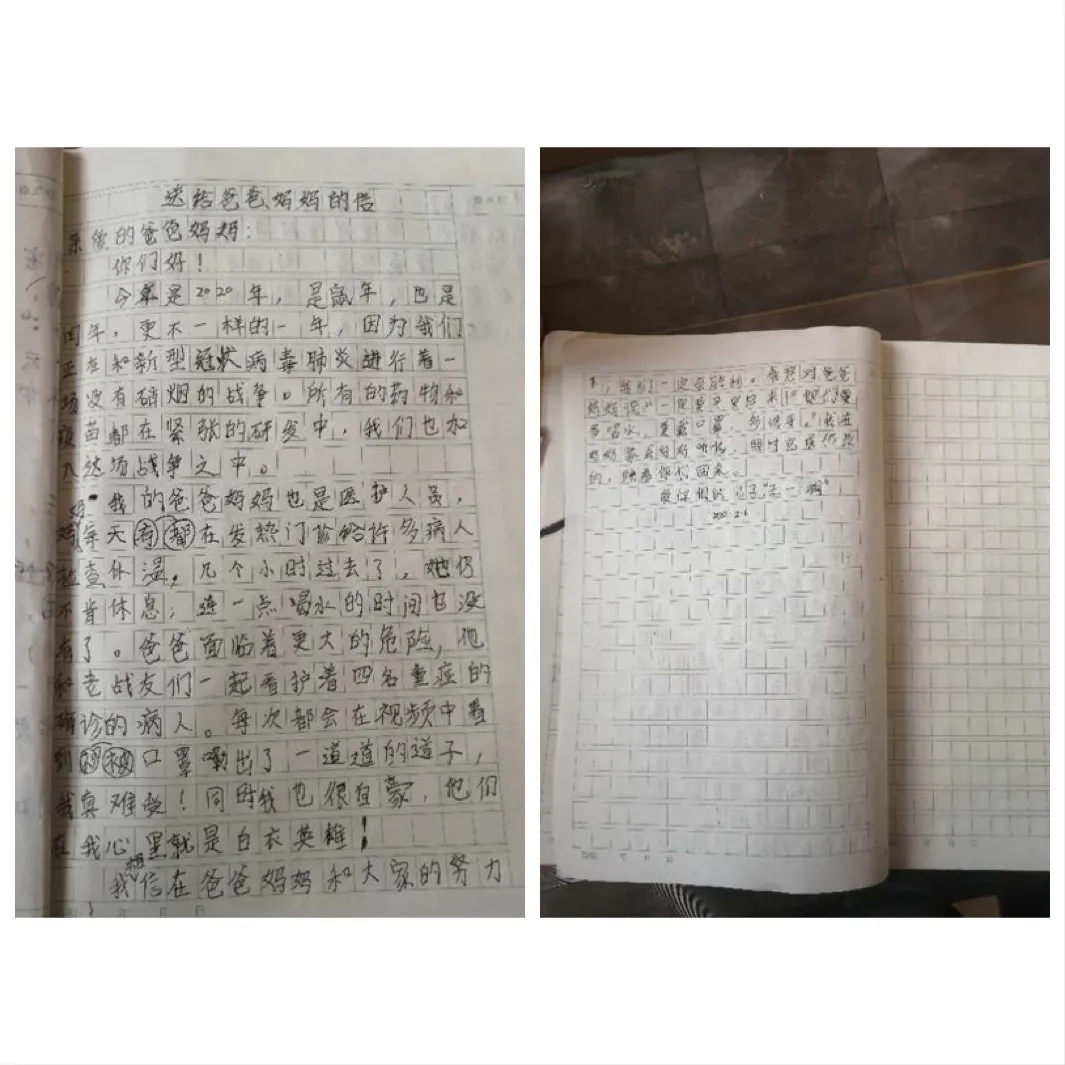 送给爸爸妈妈的信
亲爱的爸爸妈妈:
你们好!
今年是2020年,是鼠年,也是
闰年,更不一样的一年,因为我们
正在和新型冠状病毒肺炎进行着一
场没有硝烟的战争。所有的药物和
疫苗都在紧张的研发中,我们也加
入这场战争之中。
我的爸爸妈妈也是医护人员,
妈妈每天都在发热门诊给许多病人
检查体温,几个小时过去了,她仍
不肯休息,连一点喝水的时间也没
有了。爸爸面临着更大的危险,他
和老战友们一起看护着四名重症的
确诊的病人。每次都会在视频中看
到被口罩嘞出了一道道的道子,
我真难受!同时我也很自豪,他们
在我心里就是白衣英雄!
我相信在爸爸妈妈和大家的努力
下,我们一定会胜利。我想对爸爸
妈妈说:"一定要平安归来!"你们要
多喝水,要戴口罩,勤洗手。我在
的,陪着你们回来。
爱你们的
2020.2.6